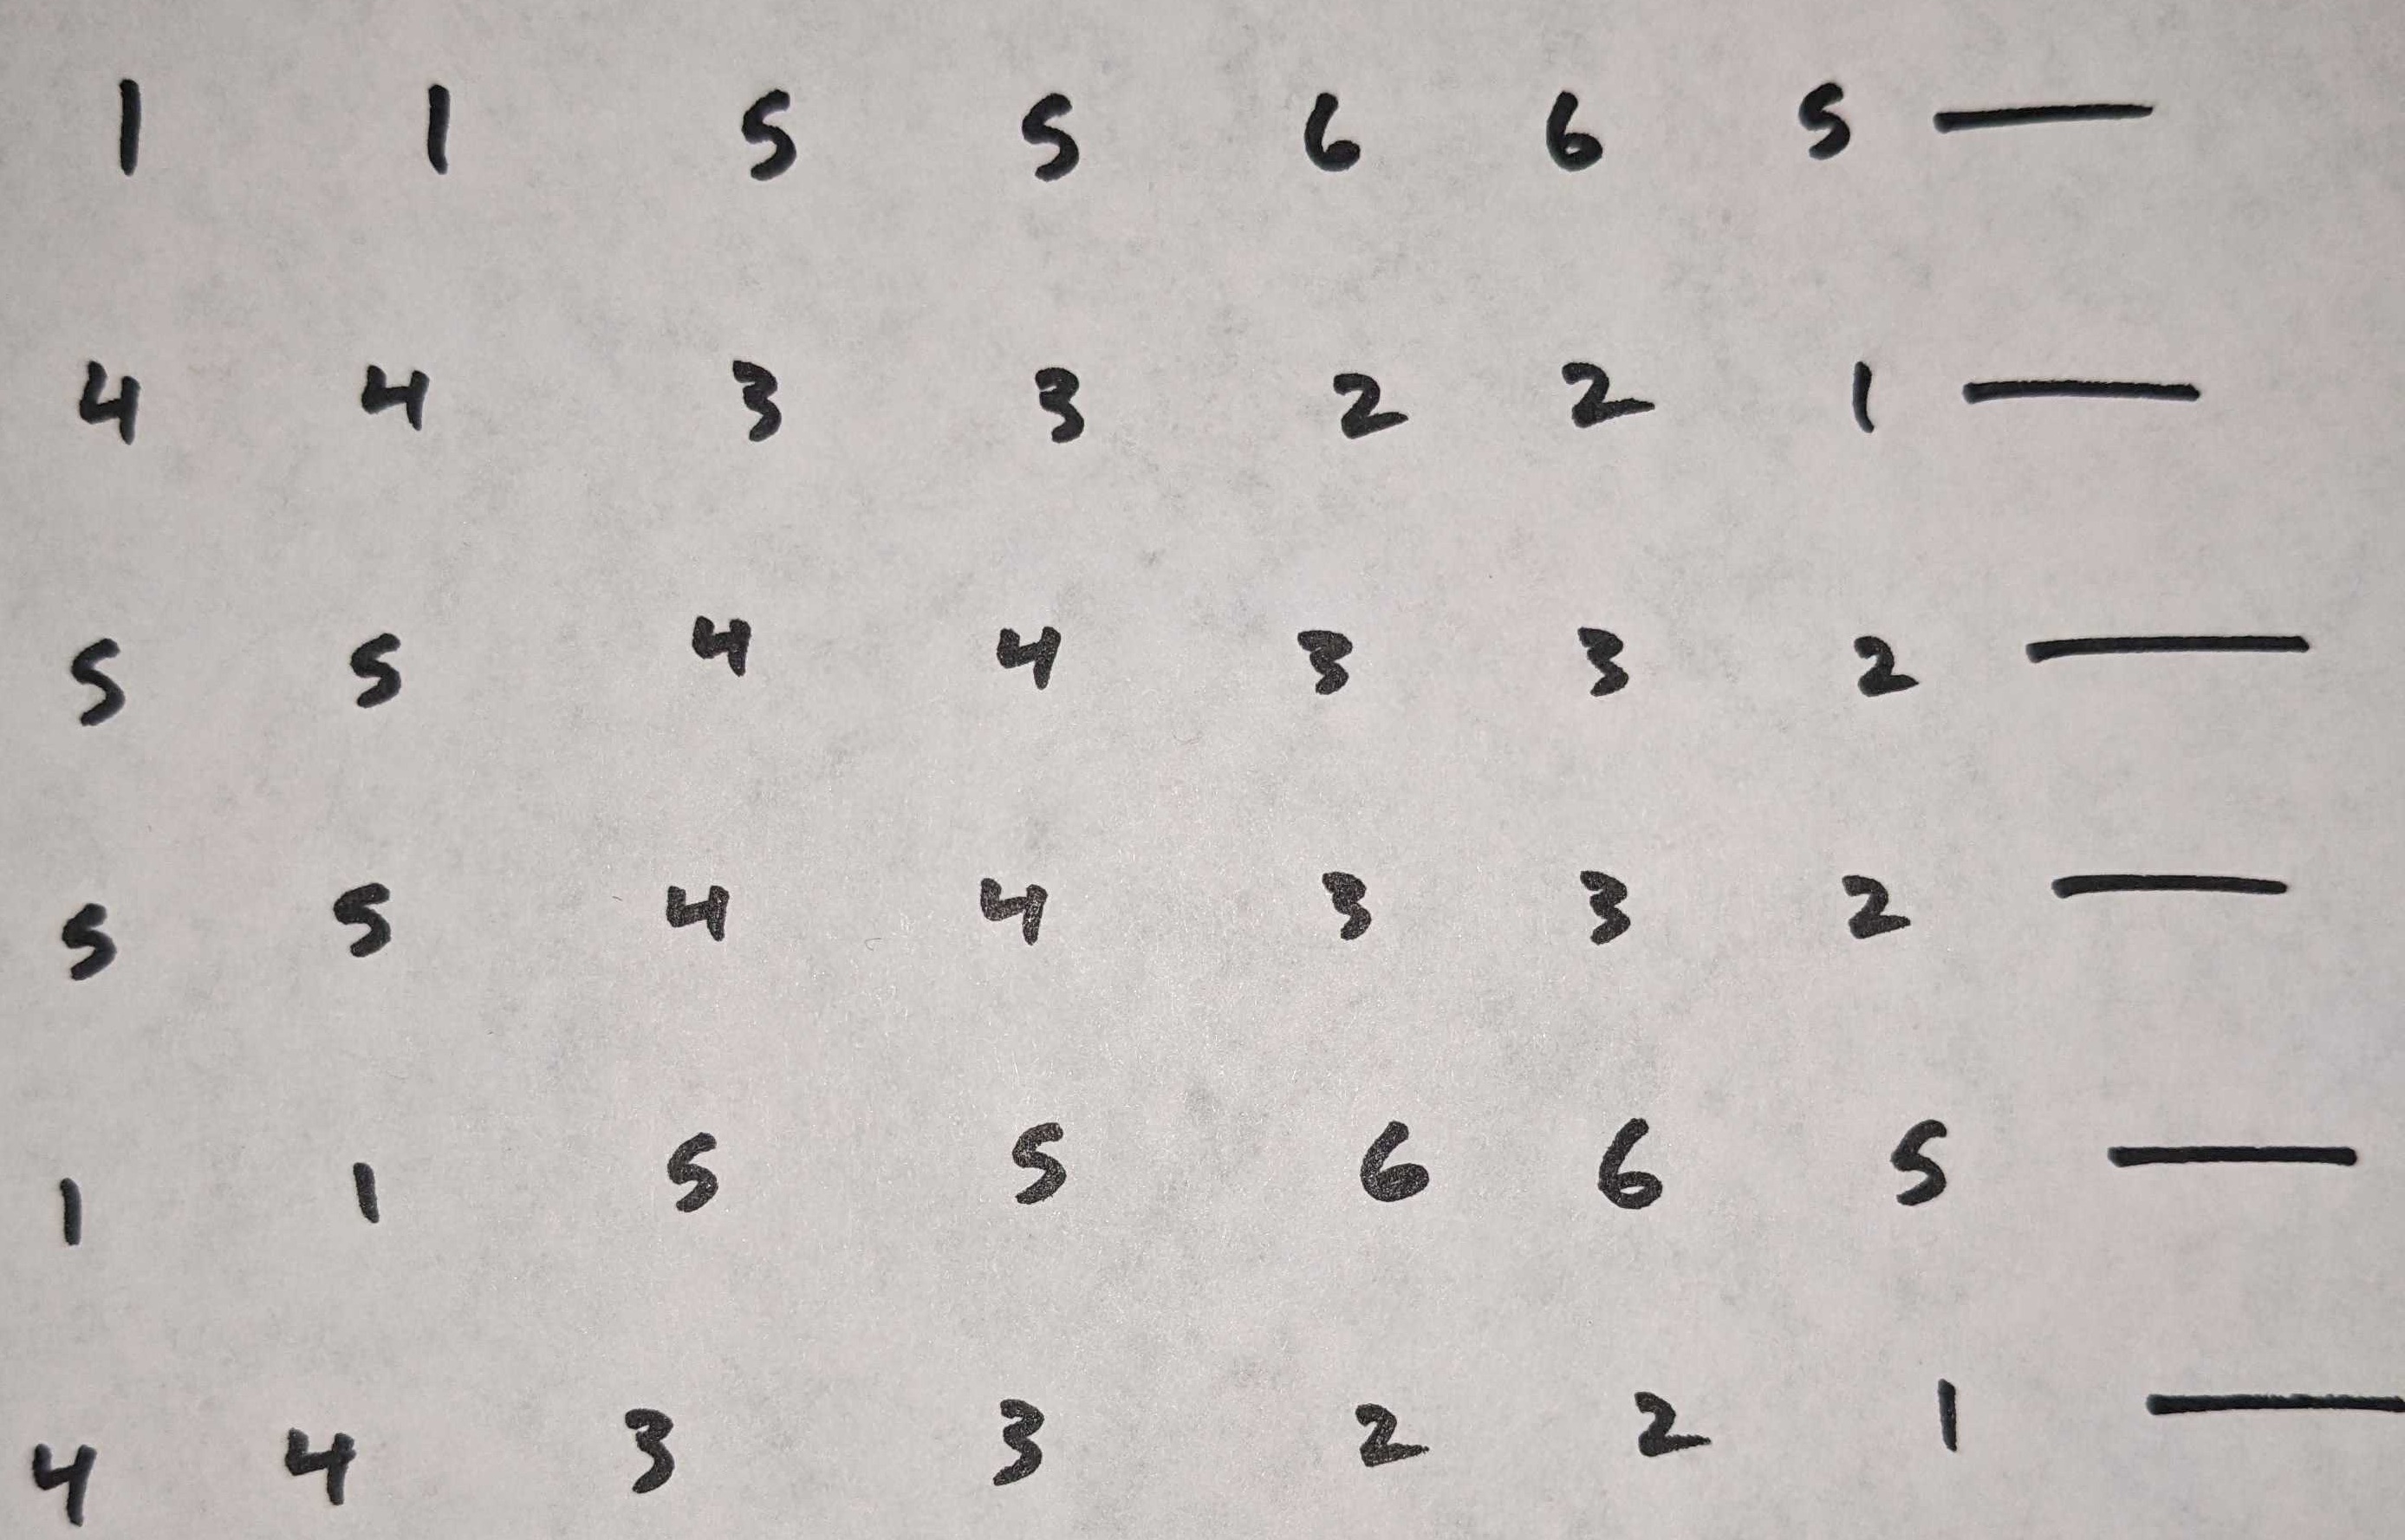 1 1 5 5 6 6 5 —
4 4 3 3 2 2 1 —
5 5 4 4 3 3 2 —
5 5 4 4 3 3 2 —
1 1 5 5 6 6 5 —
4 4 3 3 2 2 1 —